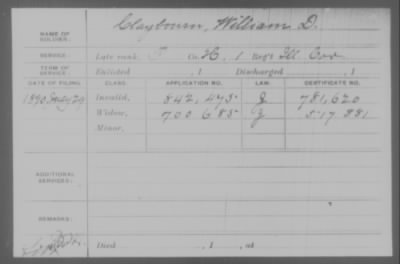 NAME OF SOLDIER: Claybourn, William D.
SERVICE: Late rank, P Co. H, 1 Reg't Ill. Cav
TERM OF SERVICE: Enlisted , 1 Discharged , 1
DATE OF FILING. CLASS. APPLICATION NO. LAW. CERTIFICATE NO.
1890 July 29 Invalid, 842,475 J 781,620
Widow, 700 685 J 517 881
Minor,
ADDITIONAL SERVICES:
REMARKS:
Died , 1 , at